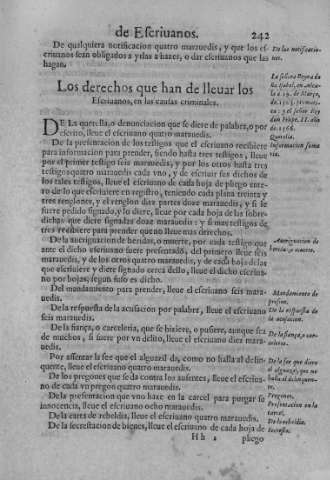 de Escriuanos. 242
De qualquiera notificacion quatro marauedis, y que los es-
criuanos sean obligados a yrlas a hazer, o dar escriuanos que las
hagan.
De las notificacio-
nes.
Los derechos que han de lleuar los
Escriuanos, en las causas criminales.
La señora Reyna do
DE La querella, o denunciacion que se diere de palabra, o por
escrito, lleue el escriuano quatro marauedis.
Querella.
De la presentacion de los testigos que el escriuano recibiere
para informacion para prender, siendo hasta tres testigos, lleue
por el primer testigo seis marauedis, y por los otros hasta tres
testigos quatro marauedis cada vno, y de escriuir sus dichos de
los tales testigos, lleue el escriuano de cada hoja de pliego ente-
ro de lo que escriuiere en registro, teniendo cada plana treinta y
tres renglones, y el renglon diez partes doze marauedis, y si le
fuere pedido signado, y lo diere, lleue por cada hoja de las sobre-
dichas que diere signadas doze marauedis: y si mas testigos de
tres recibiere para prender que no lleue mas derechos.
Informacion suma
ria.
De la aueriguacion de heridas, o muerte, por cada testigo que
ante el dicho escriuano fuere presentado, del primero lleue seis
marauedis, y de los otros quatro marauedis, y de cada hoja de los
que escriuiere y diere signado cerca dello, lleue el dicho escriua-
no por hojas, segun suso es dicho.
Aueriguacion de
heridas o muerte.
Del mandamiento para prender, lleue el escriuano seis mara-
uedis.
Mandamiento de
prision.
De la respuesta de la acusacion por palabra, lleue el escriuano
seis marauedis.
De la respuesta de
la acusacion.
De la fiança, o carceleria, que se hiziere, o pusiere, aunque sea
de muchos, si fuere por vn delito, lleue el escriuano diez mara-
uedis.
De la fiança, o car-
celeria.
Por assentar la fee que el alguazil da, como no halla al delin-
quente, lleue el escriuano quatro marauedis.
De la fee que diere
el alguazil, que no
halla al delinquen-
te.
De los pregones que se da contra los ausentes, lleue el escriua-
no de cada vn pregon quatro marauedis.
Pregones.
De la presentacion que vno haze en la carcel para purgar su
innocencia, lleue el escriuano ocho marauedis.
Presentacion en la
carcel.
De la carta de rebeldia, lleue el escriuano quatro marauedis.
De la rebeldia.
De la secrestacion de bienes, lleue el escriuano de cada hoja de
Secresto.
H h 2 pliego